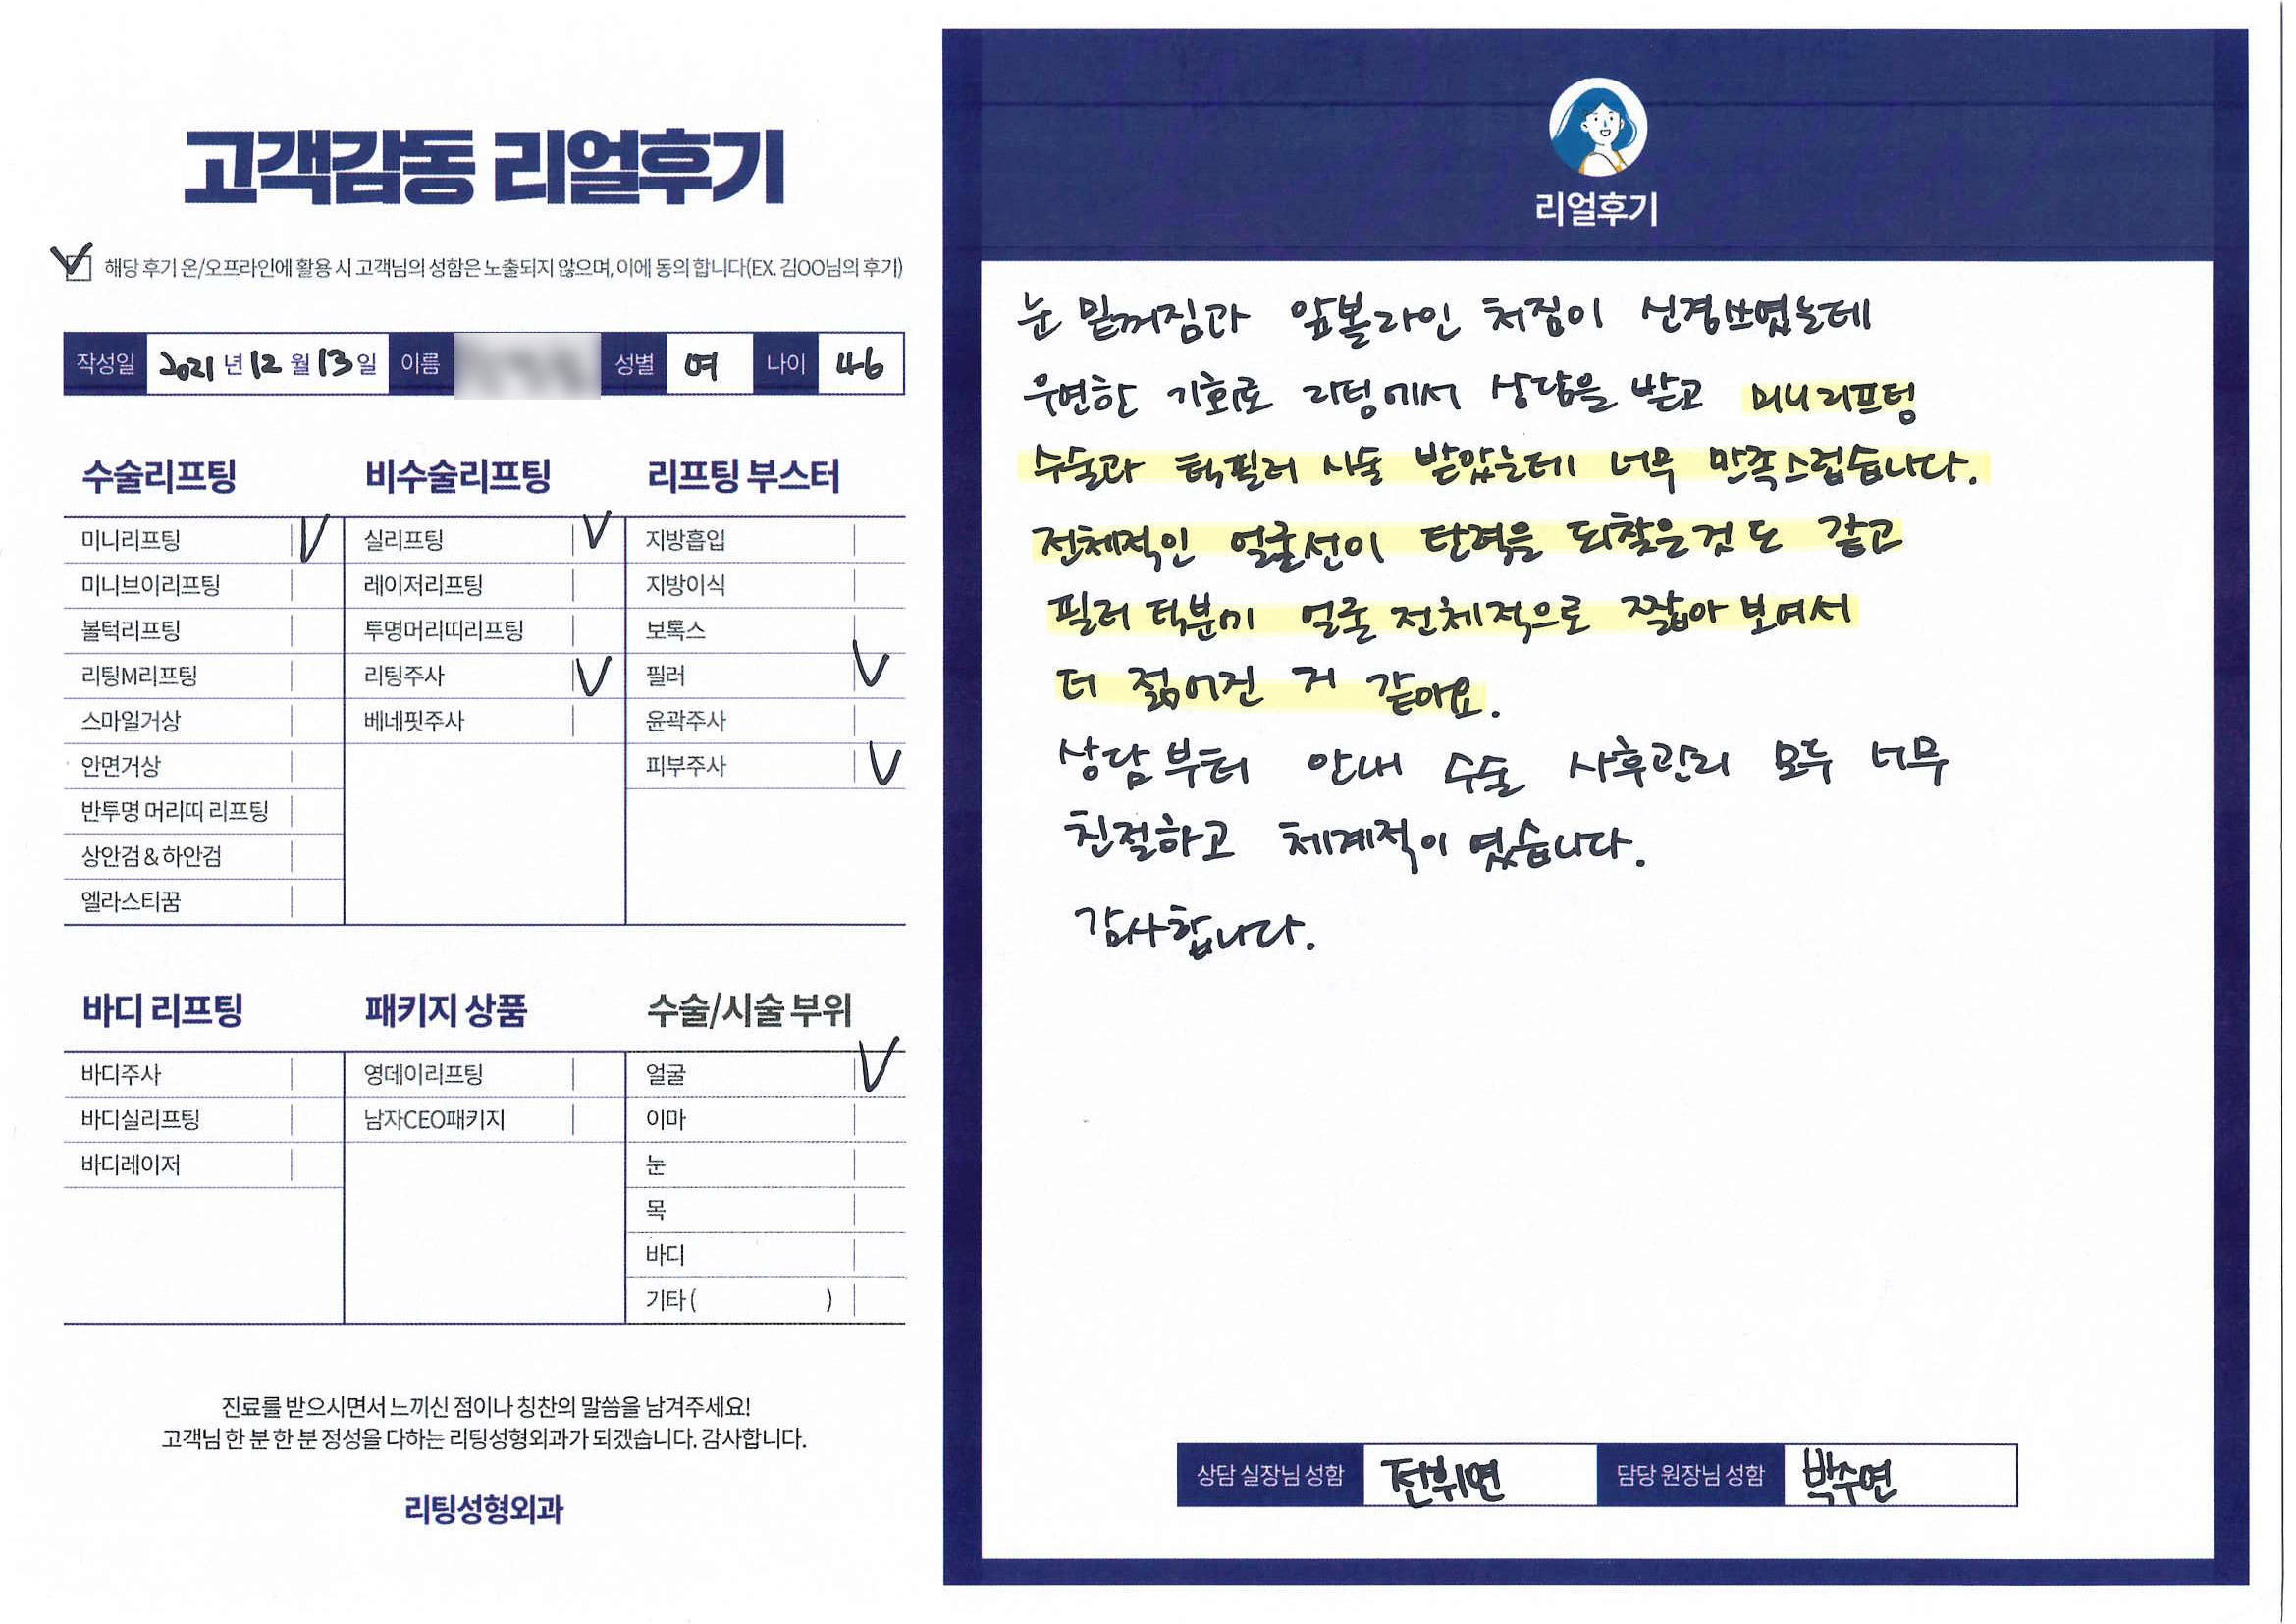 고객감동 리얼후기
해당 후기 온/오프라인에 활용 시 고객님의 성함은 노출되지 않으며, 이에 동의 합니다(EX. 김OO님의 후기)
작성일 2021년 12월 13일 이름 성별 여 나이 46
수술리프팅
미니리프팅
미니브이리프팅
볼턱리프팅
리팅M리프팅
스마일거상
안면거상
반투명 머리띠 리프팅
상안검 & 하안검
엘라스티꿈
비수술리프팅
실리프팅
레이저리프팅
투명머리띠리프팅
리팅주사
베네핏주사
리프팅 부스터
지방흡입
지방이식
보톡스
필러
윤곽주사
피부주사
바디 리프팅
바디주사
바디실리프팅
바디레이저
패키지 상품
영데이리프팅
남자CEO패키지
수술/시술 부위
얼굴
이마
눈
목
바디
기타 ( )
진료를 받으시면서 느끼신 점이나 칭찬의 말씀을 남겨주세요!
고객님 한 분 한 분 정성을 다하는 리팅성형외과가 되겠습니다. 감사합니다.
리팅성형외과
리얼후기
눈 밑꺼짐과 앞볼라인 처짐이 신경쓰였는데
우연한 기회로 리팅에서 상담을 받고 미니리프팅
수술과 턱필러 시술 받았는데 너무 만족스럽습니다.
전체적인 얼굴선이 탄력을 되찾은것 도 같고
필러 덕분에 얼굴 전체적으로 짧아 보여서
더 젊어진 거 같아요.
상담부터 안내 수술 사후관리 모두 너무
친절하고 체계적이 였습니다.
감사합니다.
상담 실장님 성함 전휘연 담당 원장님 성함 박수연